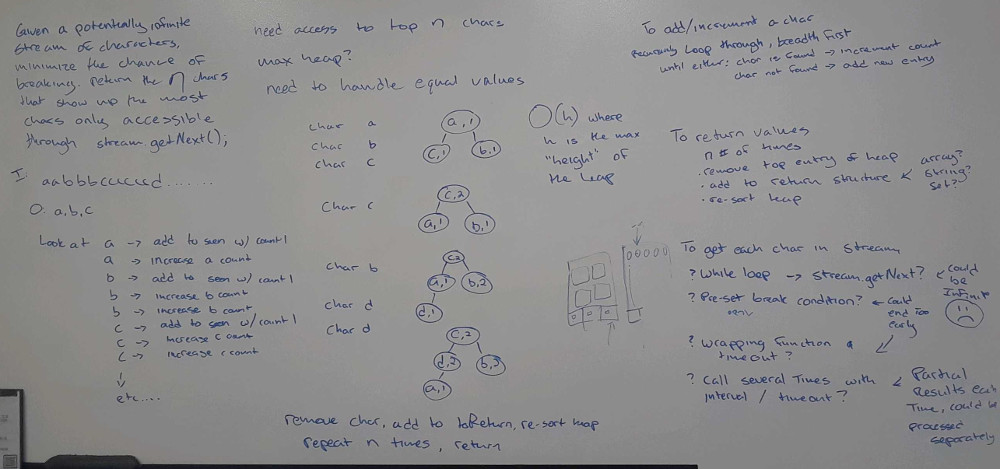 Given a potentially infinite
stream of characters,
minimize the chance of
breaking. return the n chars
that show up the most
chars only accessible
through stream.getNext();
I: aabbbcccccd.......
O: a,b,c
Look at a -> add to seen w/ count 1
a -> increase a count
b -> add to seen w/ count 1
b -> increase b count
b -> increase b count
c -> add to seen w/ count 1
c -> increase c count
c -> increase c count
etc....
need access to top n chars
max heap?
need to handle equal values
char a
char b
char c
a,1
c,1
b,1
O(h) where
h is the max
"height" of
the heap
char c
c,2
a,1
b,1
char b
c2
a,1
b,2
d,1
char d
char d
c,2
d,2
b,3
a,1
remove char, add to toReturn, re-sort heap
repeat n times, return
To add/increment a char
Loop through, breadth first
until either: char is found -> increment count
char not found -> add new entry
To return values
n # of times
· remove top entry of heap
· add to return structure <- array? string? set?
· re-sort heap
00000
To get each char in stream
? While loop -> stream.getNext? <- could be Infinite
? Pre-set break condition? <- Could end too early
? Wrapping function &
timeout?
? Call several times with
interval / timeout?
<- Partial
Results each
Time, could be
processed
separately